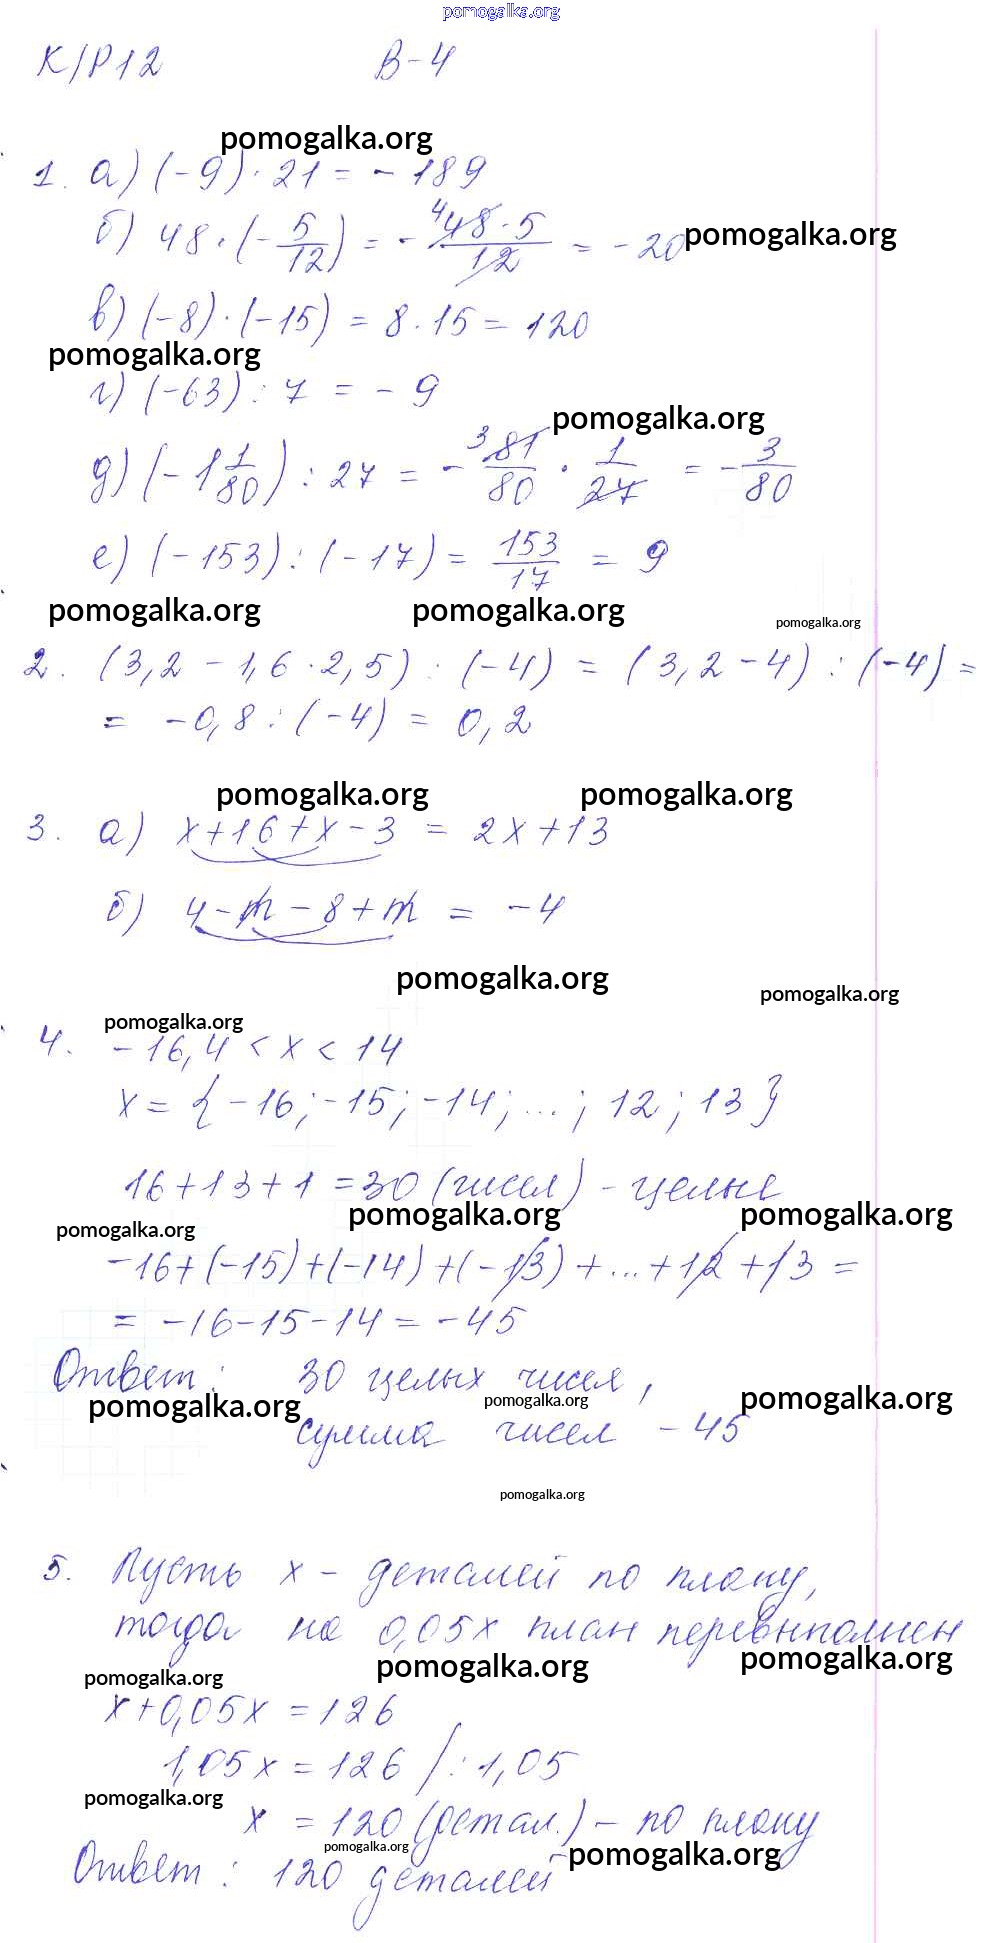 pomogalka.org
К/Р12 В-4
pomogalka.org
1. а) (-9) · 21 = - 189
б) 48 · (- 5/12) = - 4 48 · 5/12 = - 20 pomogalka.org
в) (-8) · (-15) = 8 · 15 = 120
pomogalka.org
г) (-63) : 7 = - 9
pomogalka.org
д) (- 1 1/80) : 27 = - 3 81/80 · 1/27 = - 3/80
е) (-153) : (-17) = 153/17 = 9
pomogalka.org pomogalka.org pomogalka.org
2. (3,2 - 1,6 · 2,5) : (-4) = (3,2 - 4) : (-4) =
= -0,8 : (-4) = 0,2
pomogalka.org pomogalka.org
3. а) x+16+x-3 = 2x+13
б) 4-m-8+m = -4
pomogalka.org pomogalka.org
pomogalka.org
4. -16,4 < x < 14
x = {-16; -15; -14; ...; 12; 13}
16+13+1 =30 (чисел) - целые
pomogalka.org pomogalka.org pomogalka.org
-16+(-15)+(-14)+(-13)+...+12+13 =
= -16-15-14 = -45
Ответ: 30 целых чисел,
pomogalka.org pomogalka.org pomogalka.org
сумма чисел - 45
pomogalka.org
5. Пусть x - деталей по плану,
тогда на 0,05x план перевыполнен
pomogalka.org pomogalka.org pomogalka.org
x+0,05x = 126
1,05x = 126 /: 1,05
pomogalka.org
x = 120 (детал.) - по плану
pomogalka.org pomogalka.org
Ответ: 120 деталей